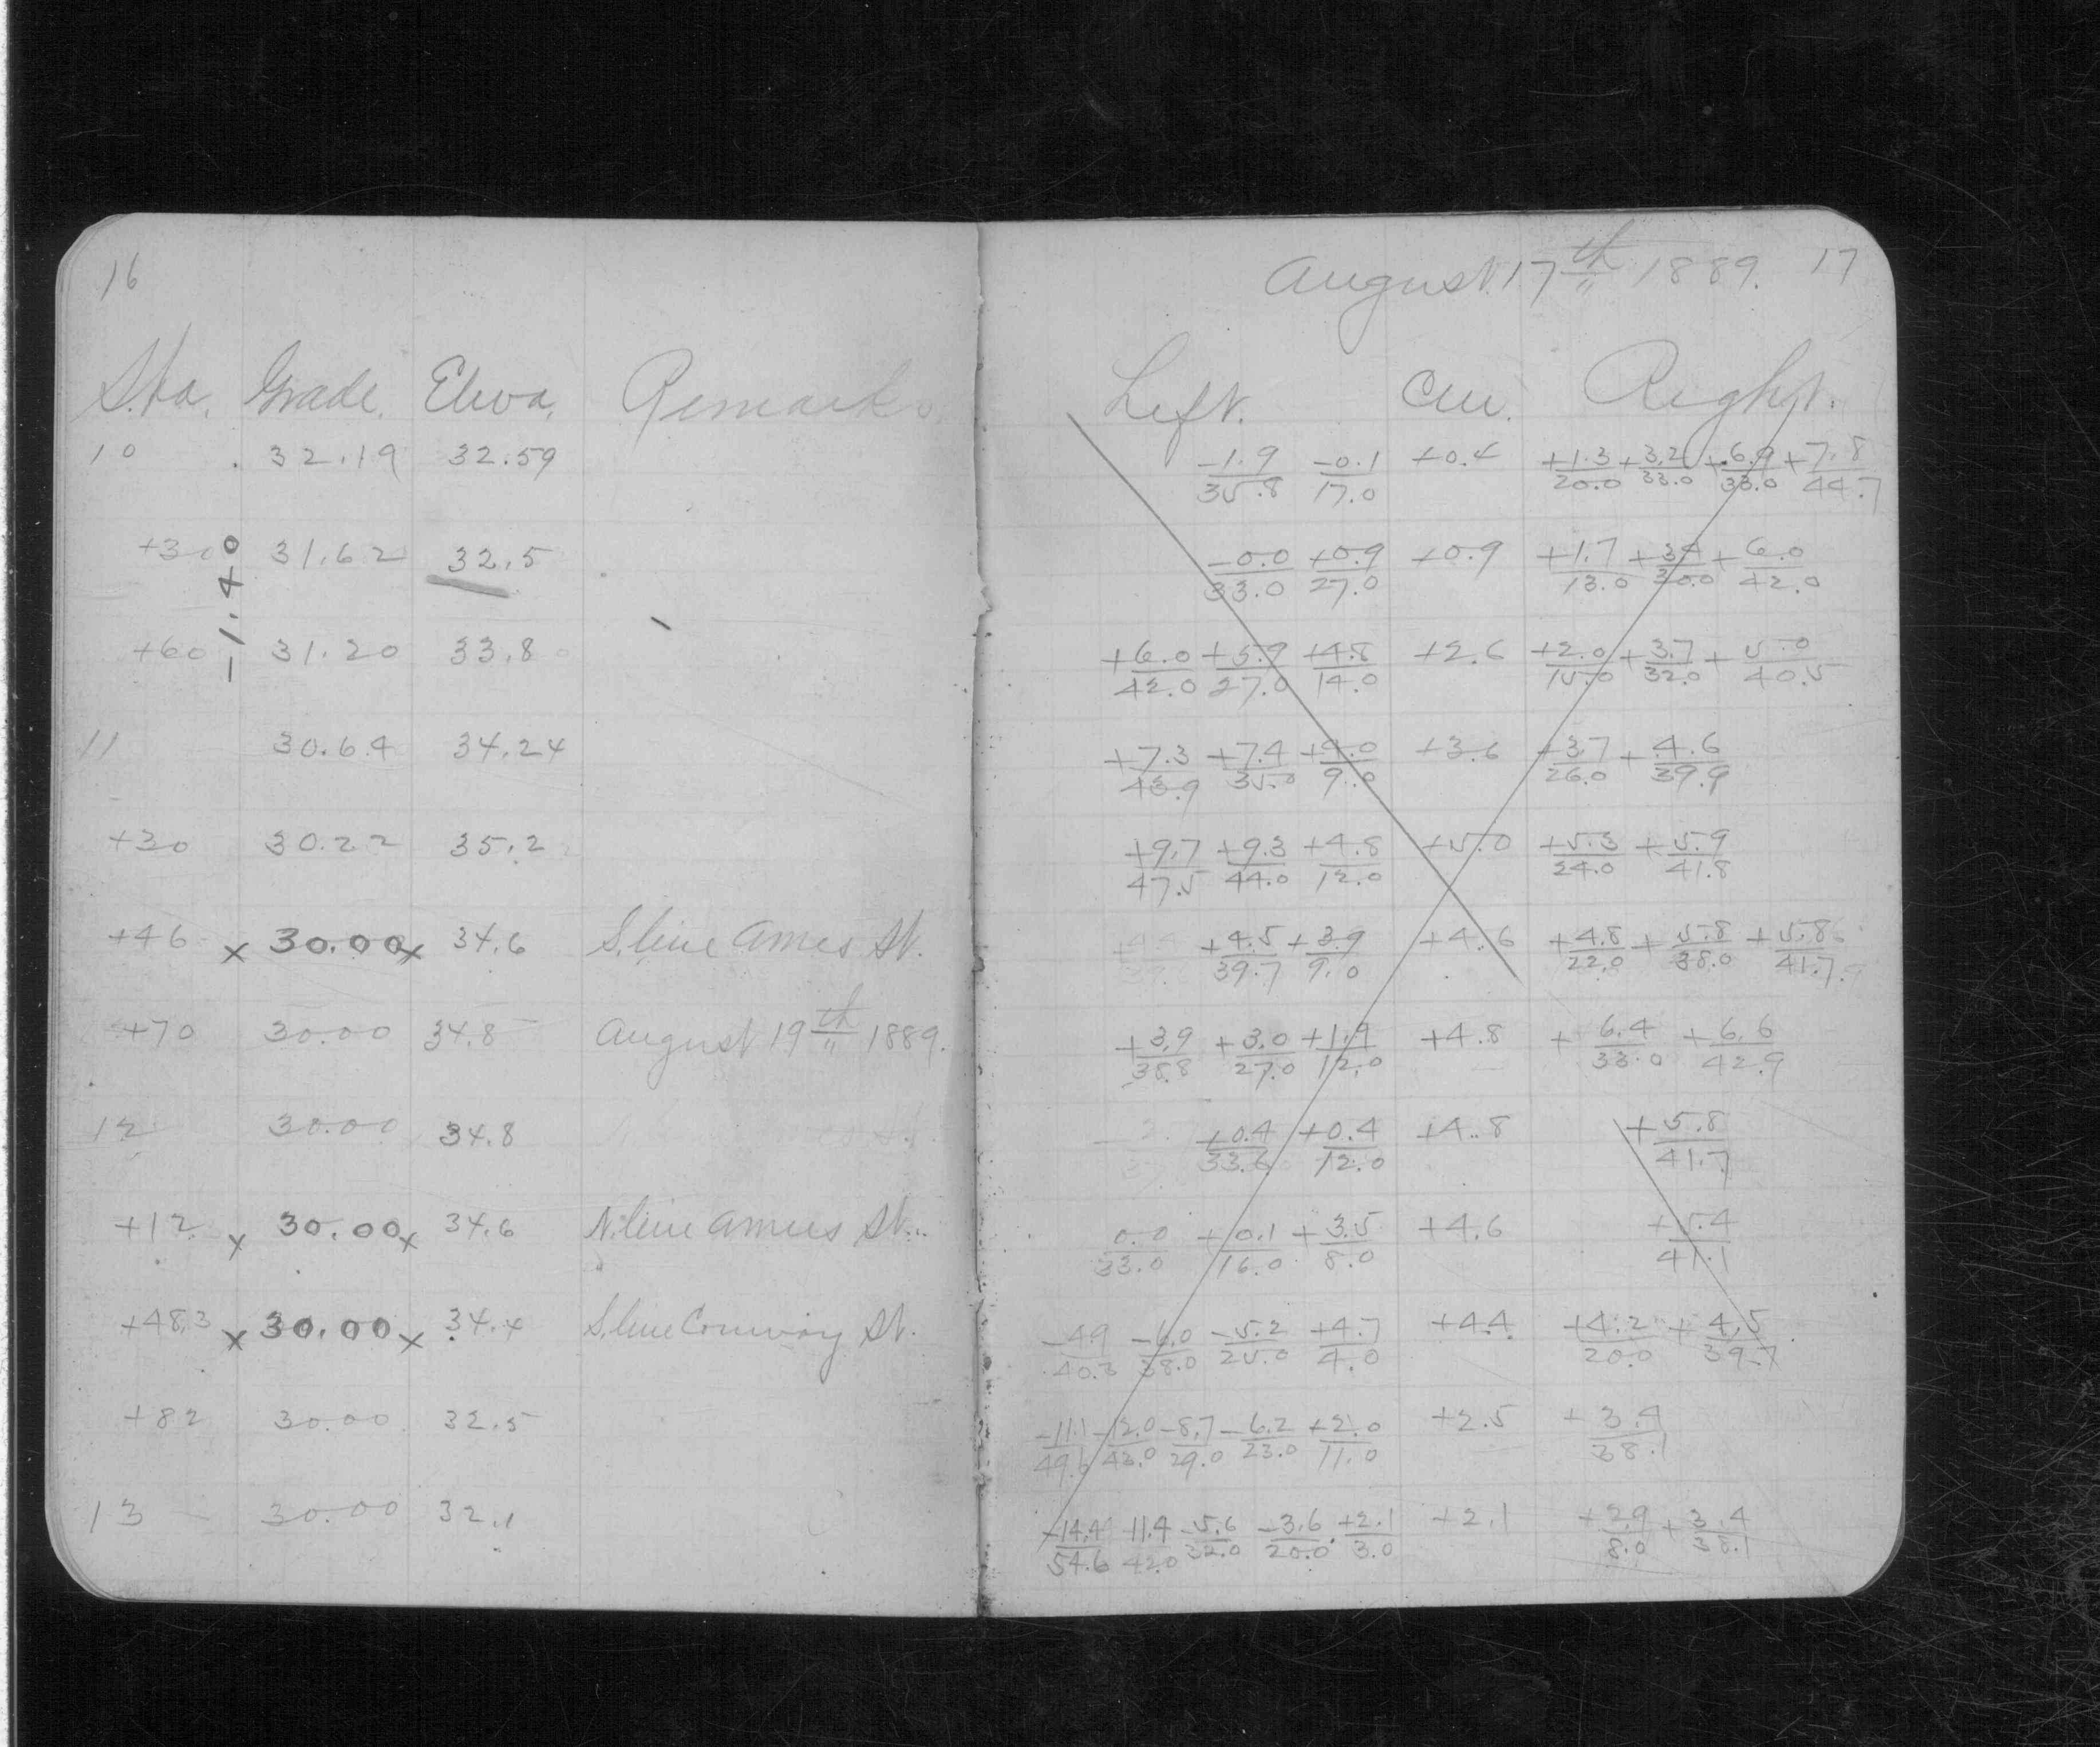 16
Sta. Grade. Eleva. Remarks.
10 32.19 32.59
+30 31.62 32.5
-1.40
+60 31.20 33.8
11 30.64 34.24
+30 30.22 35.2
+46 x 30.00 x 34.6 S. line Ames St.
+70 30.00 34.8 August 19th 1889.
12 30.00 34.8
+12 x 30.00 x 34.6 N. line Ames St.
+48.3 x 30.00 x 34.4 S. line Conway St.
+82 30.00 32.5
13 30.00 32.1
August 17th 1889. 17
Left. Cen. Right.
-1.9/35.8 -0.1/17.0 +0.4 +1.3/20.0 +3.2/33.0 +6.9/33.0 +7.8/44.7
-0.0/33.0 +0.9/27.0 +0.9 +1.7/13.0 +3.4/30.0 +6.0/42.0
+6.0/42.0 +5.9/27.0 +4.8/14.0 +2.6 +2.0/15.0 +3.7/32.0 +5.0/40.5
+7.3/43.9 +7.4/35.0 +4.0/9.0 +3.6 +3.7/26.0 +4.6/39.9
+9.7/47.5 +9.3/44.0 +4.8/12.0 +5.0 +5.3/24.0 +5.9/41.8
+4.5/39.7 +3.9/9.0 +4.6 +4.8/22.0 +5.8/38.0 +5.8/41.7
+3.9/38.8 +3.0/27.0 +1.9/12.0 +4.8 +6.4/33.0 +6.6/42.9
+0.4/33.6 +0.4/12.0 +4.8 +5.8/41.7
0.0/33.0 +0.1/16.0 +3.5/8.0 +4.6 +5.4/41.1
-4.9/40.3 -6.0/38.0 -5.2/25.0 +4.7/4.0 +4.4 +4.2/20.0 +4.5/39.7
-11.1/49.6 -12.0/43.0 -8.7/29.0 -6.2/23.0 +2.0/11.0 +2.5 +3.4/38.1
-14.4/54.6 -11.4/42.0 -5.6/32.0 -3.6/20.0 +2.1/3.0 +2.1 +2.9/8.0 +3.4/38.1